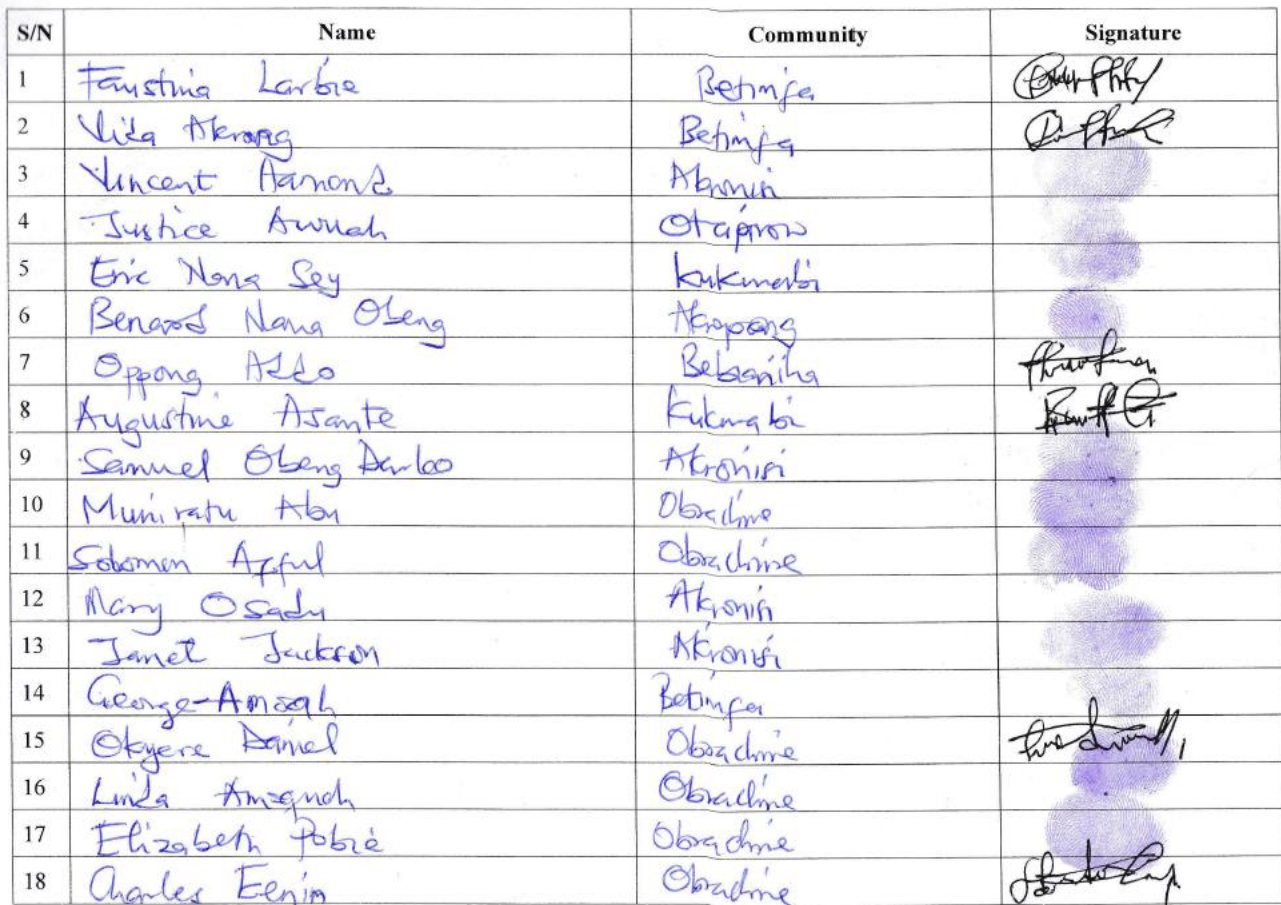 S/N Name Community Signature
1 Faustina Larbie Betinfa
2 Vida Akrong Betinfa
3 Vincent Aamond Akronisi
4 Justice Awuah Otaprow
5 Eric Nana Sey Kukmabi
6 Benard Nana Obeng Akropong
7 Oppong Addo Bebianiha
8 Augustine Asante Kukmabi
9 Samuel Obeng Darko Akronisi
10 Muniratu Abu Obrachire
11 Solomon Apful Obrachire
12 Mary Osadu Akronisi
13 Janet Jackson Akronisi
14 George Amoah Betinfa
15 Okyere Daniel Obrachire
16 Linda Amoquah Obrachire
17 Elizabeth Pobie Obrachire
18 Charles Eenin Obrachire